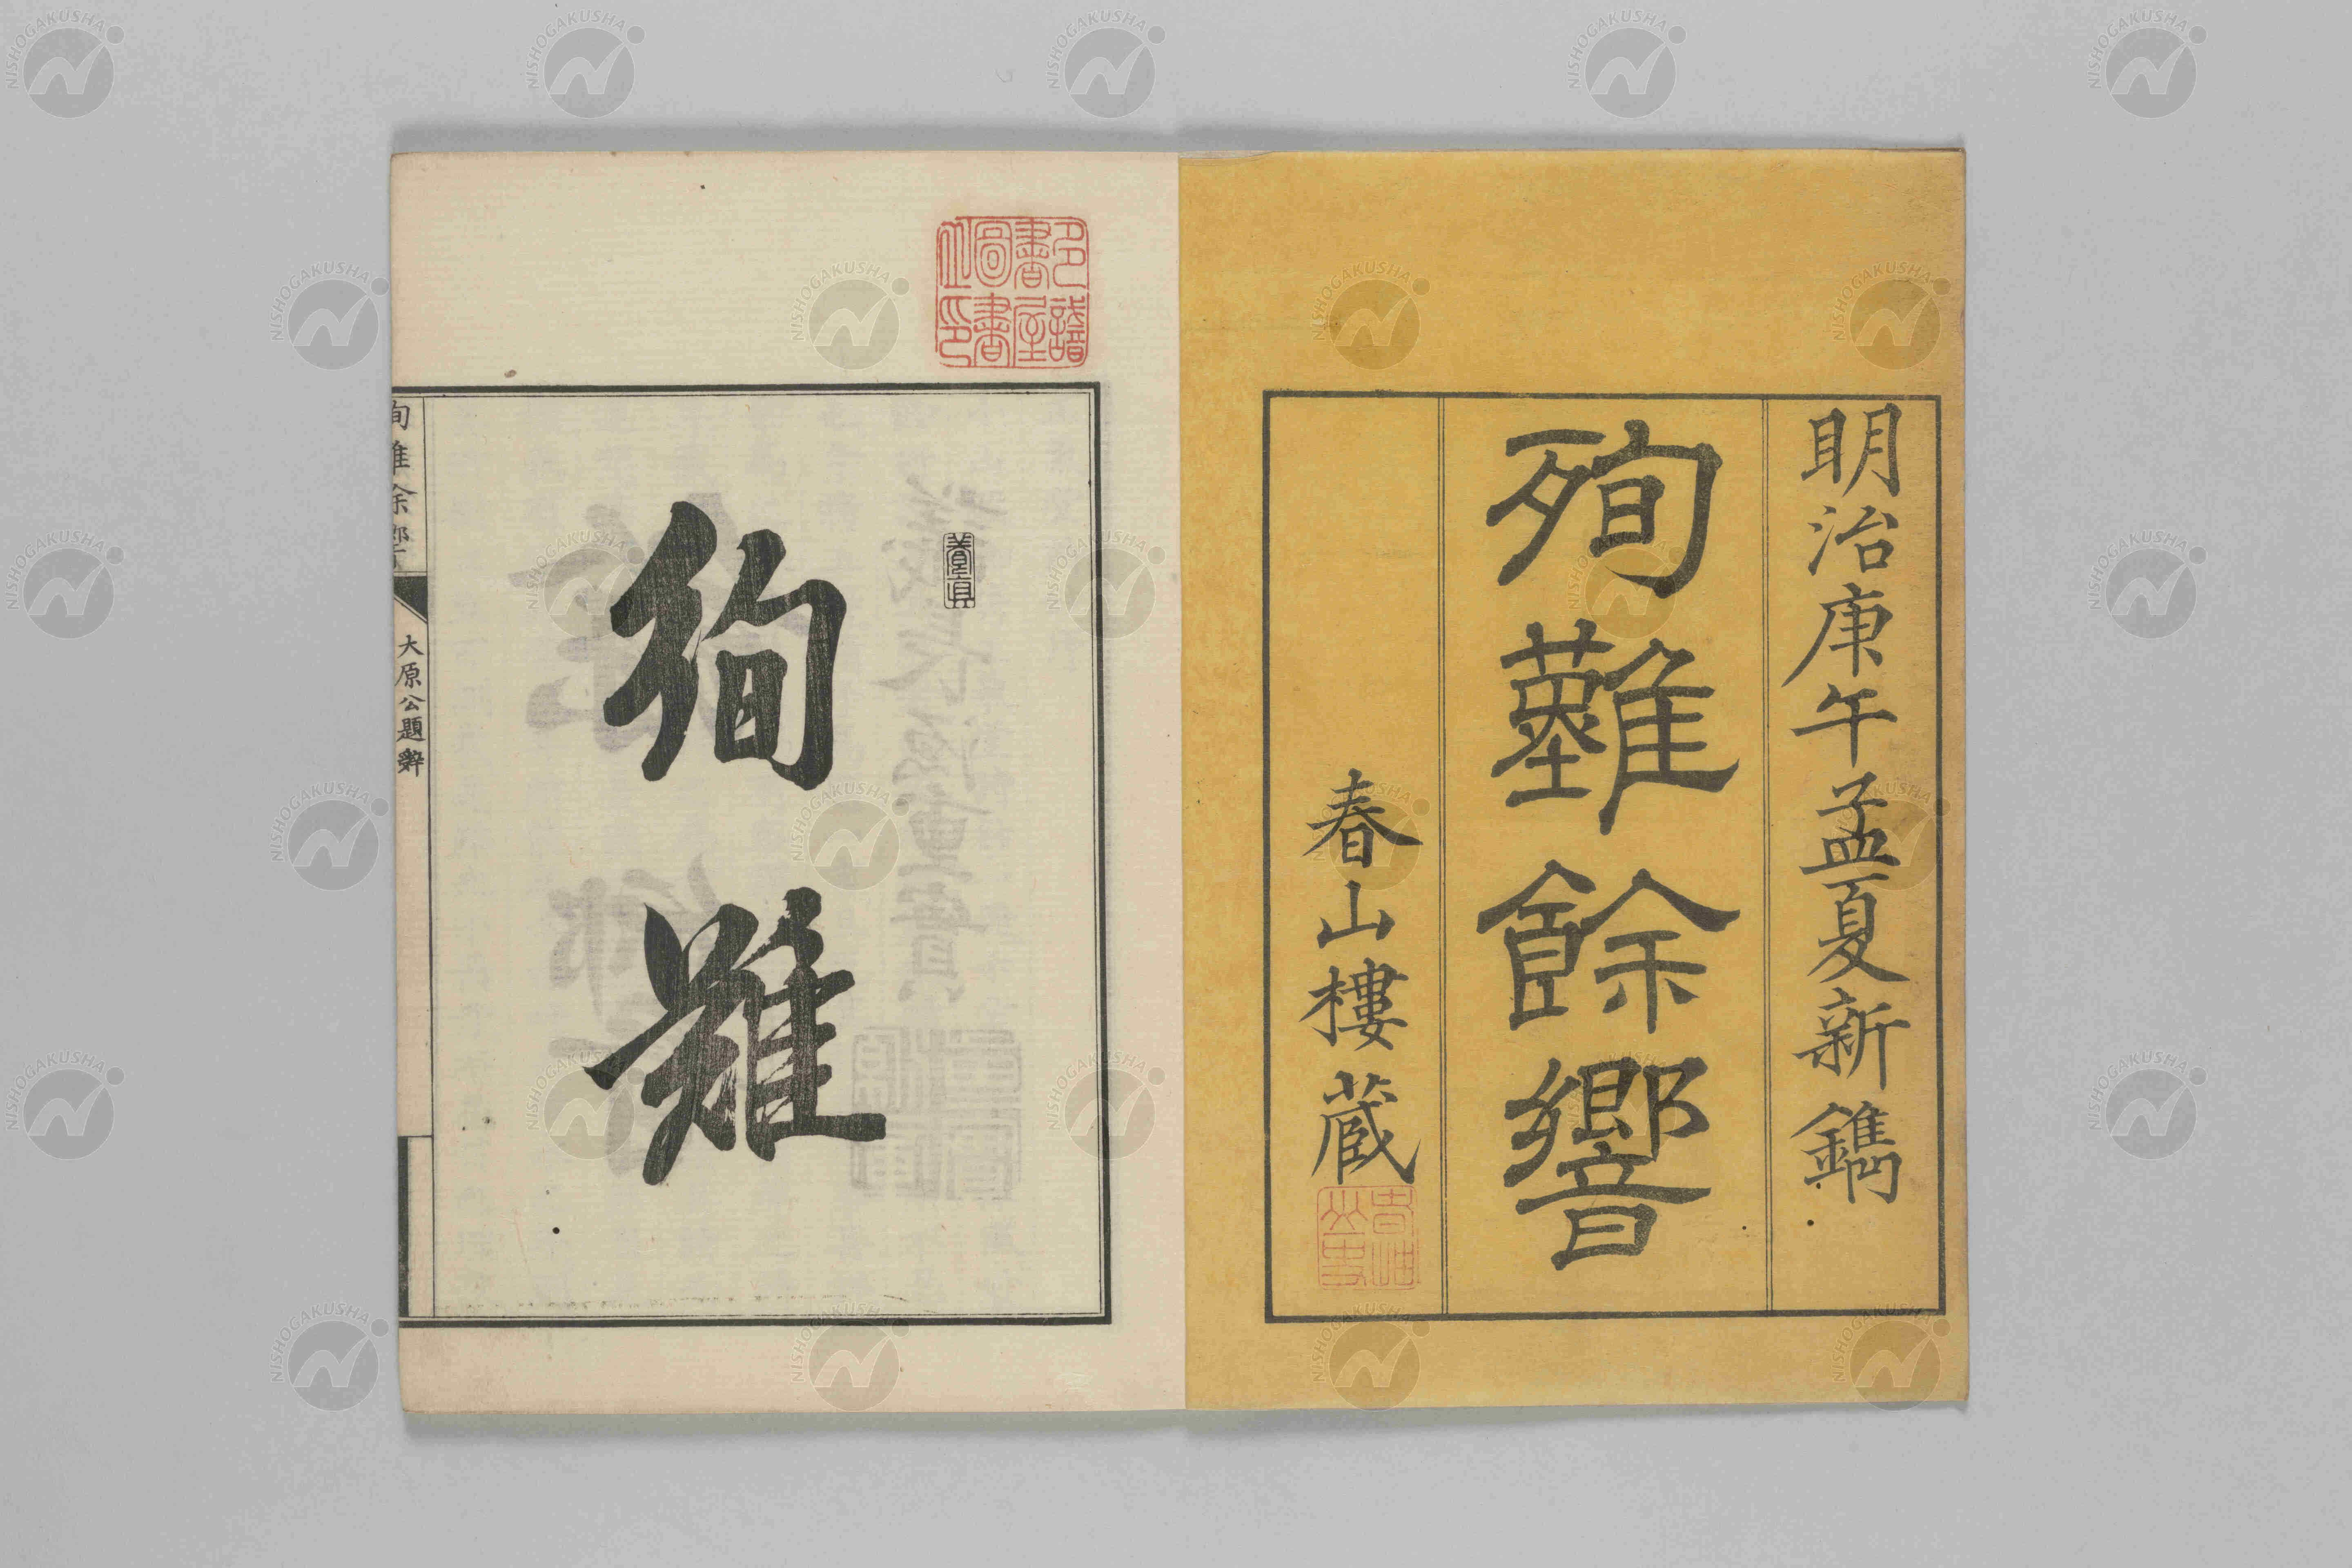 明治庚午孟夏新鐫
殉難餘響
春山樓蔵
養真
殉難
殉難余響
大原公題辭
NISHOGAKUSHA